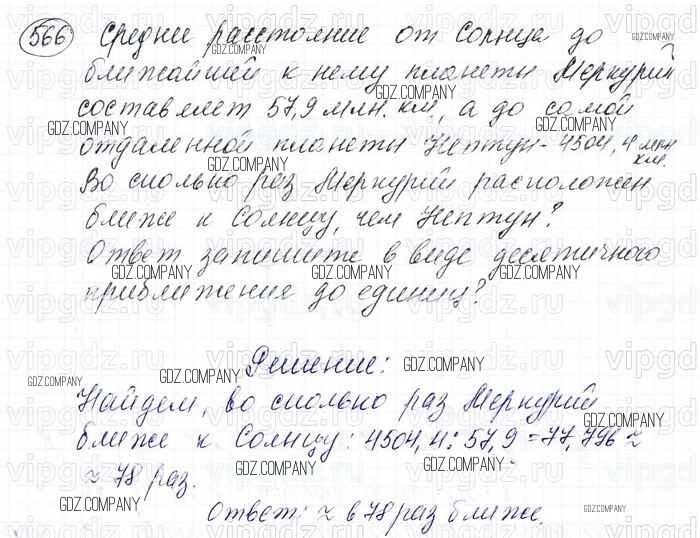 566 Среднее расстояние от Солнца до
ближайшей к нему планеты Меркурий
составляет 57,9 млн. км., а до самой
отдаленной планеты Нептун - 4504,4 млн
км.
Во сколько раз Меркурий расположен
ближе к Солнцу, чем Нептун?
Ответ запишите в виде десятичного
приближения до единиц?
Решение:
Найдем, во сколько раз Меркурий
ближе к Солнцу: 4504,4 : 57,9 = 77,796 ≈
≈ 78 раз.
Ответ: ≈ в 78 раз ближе.
GDZ.COMPANY
vipgdz.ru